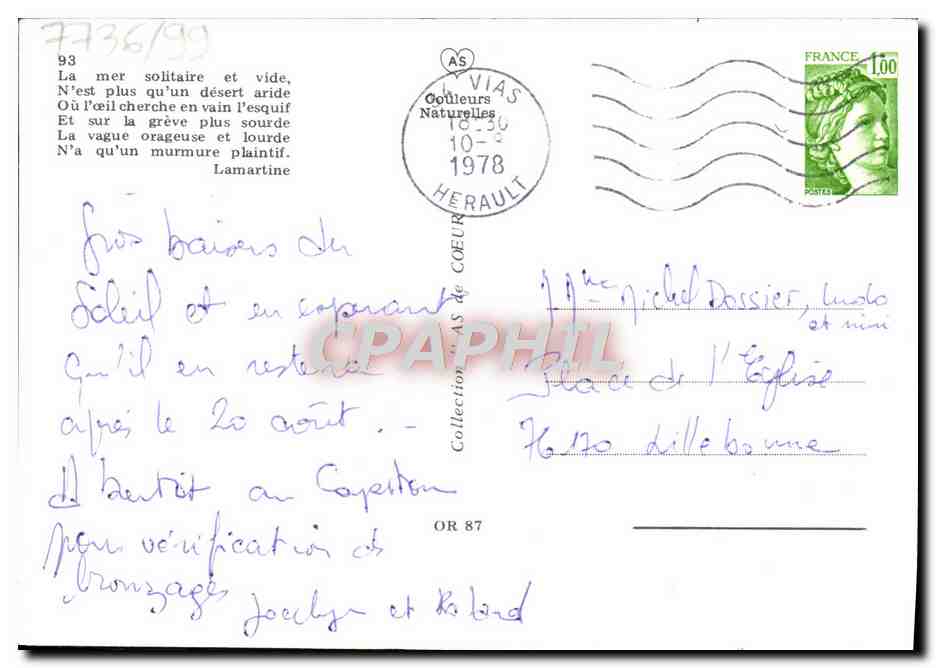 7736/99
93
La mer solitaire et vide,
N'est plus qu'un désert aride
Où l'œil cherche en vain l'esquif
Et sur la grève plus sourde
La vague orageuse et lourde
N'a qu'un murmure plaintif.
Lamartine
AS
Couleurs
Naturelles
34 VIAS
18 30
10-8
1978
HERAULT
FRANCE
1,00
POSTES
Gros baisers du
Soleil et en esperant
qu'il en restera
après le 20 août. -
A bientôt au
pour vérification des
bronzages Jocelyn et Roland
Collection AS de CŒUR
CPAPHIL
Michel Dossier, Ludo
et mimi
Place de l'Eglise
76170 Lillebonne
OR 87